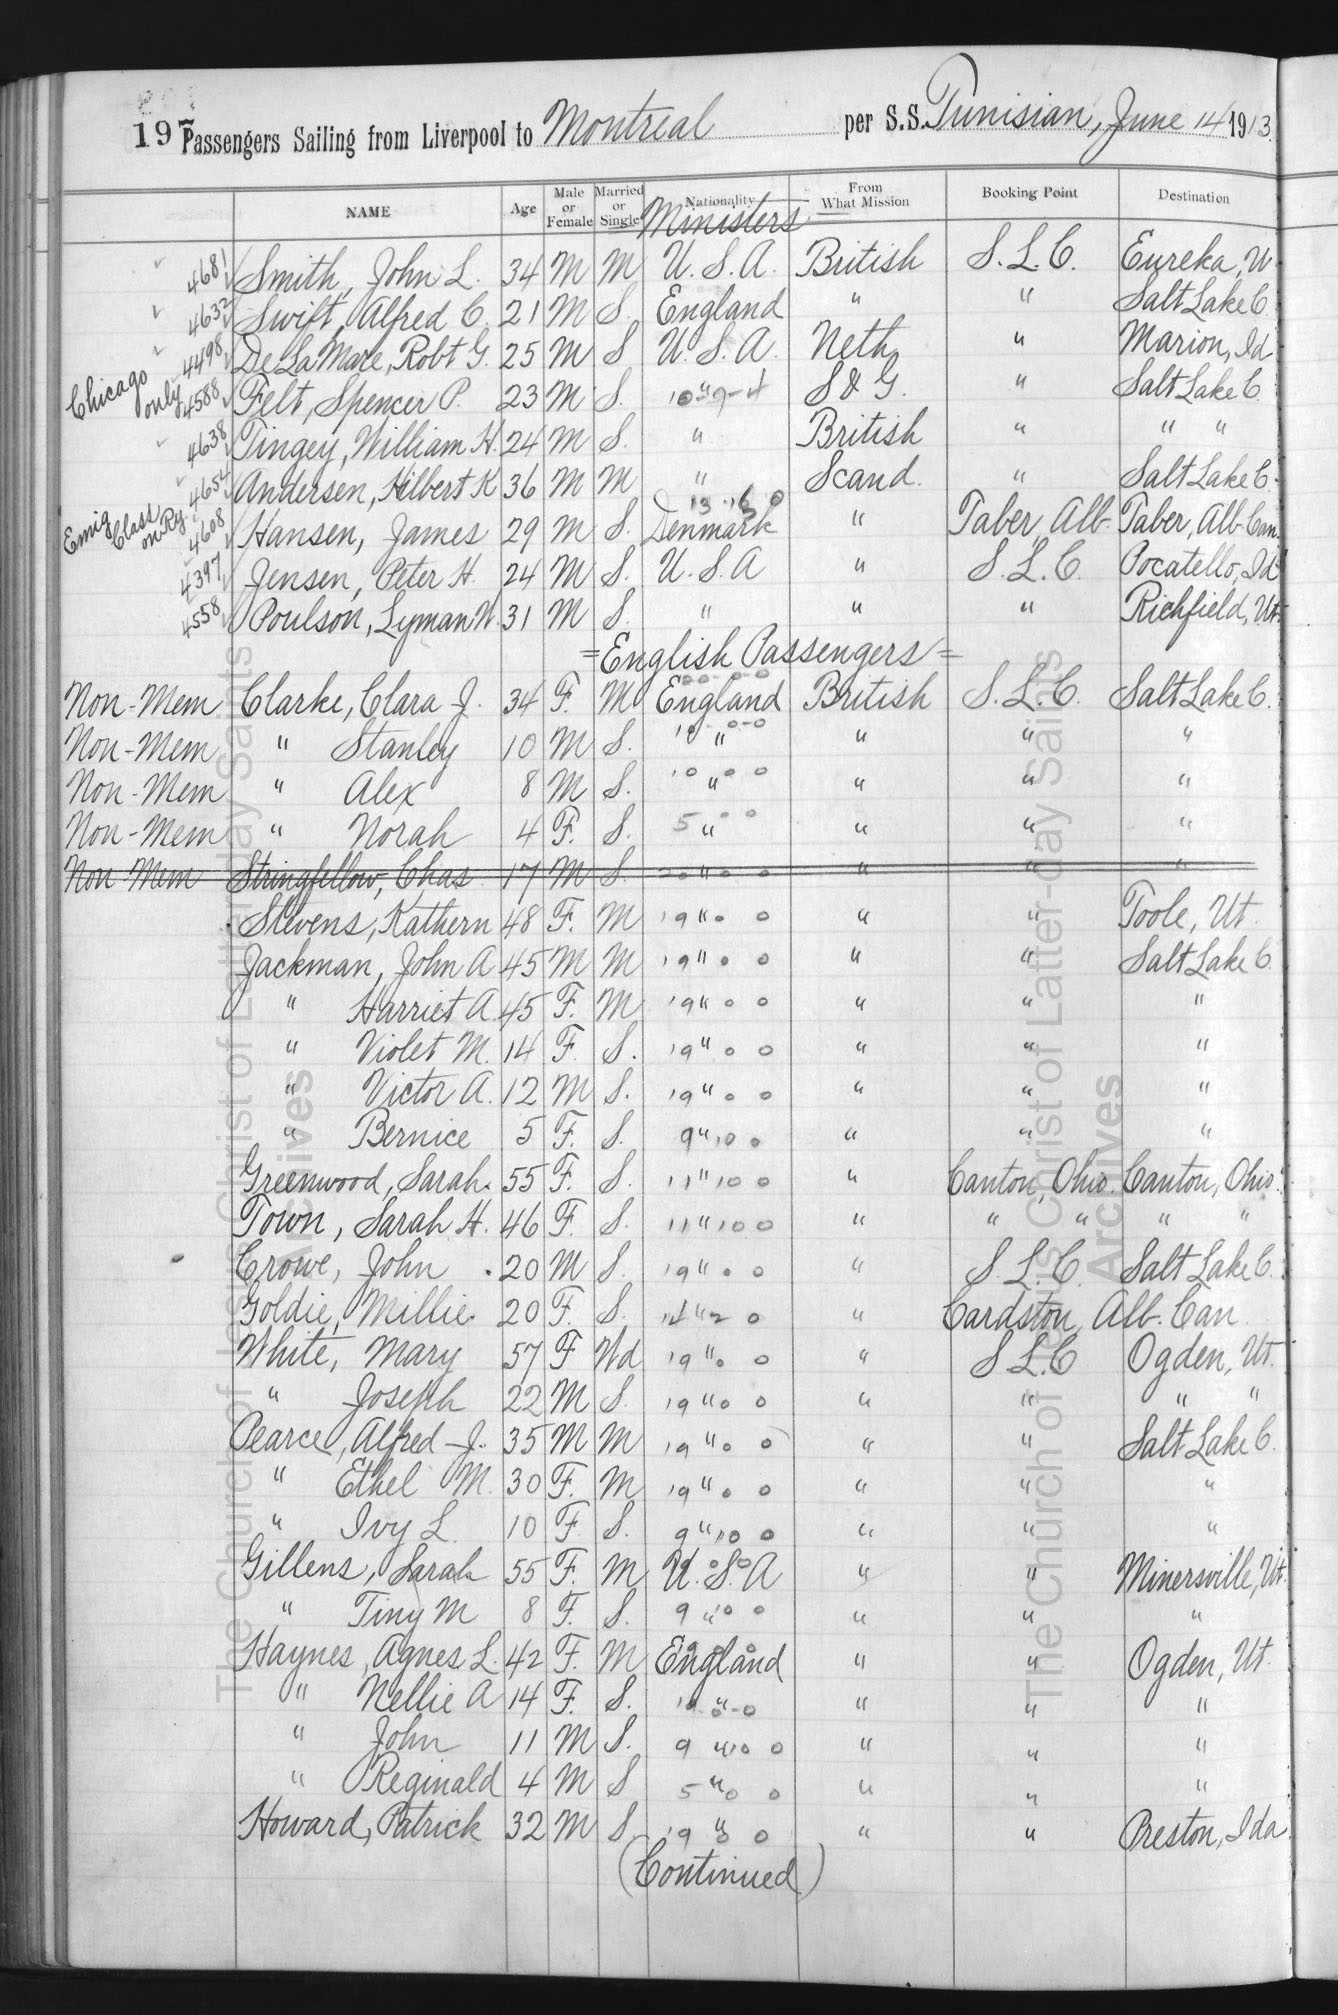 197 Passengers Sailing from Liverpool to Montreal per S.S. Tunisian, June 14 1913
NAME Age Male or Female Married or Single Nationality From What Mission Booking Point Destination
Ministers
4681 Smith, John L. 34 M M U. S. A. British S. L. C. Eureka, U
4632 Swift, Alfred C. 21 M S. England " " Salt Lake C.
4498 De La Mare, Robt G. 25 M S U. S. A. Neth. " Marion, Id
Chicago only 4588 Felt, Spencer P. 23 M S. " 10-9-4 S & G. " Salt Lake C.
4638 Tingey, William H. 24 M S. " British " " "
4654 Andersen, Hilbert K 36 M M " Scand. " Salt Lake C.
Emig Class on Ry. 4608 Hansen, James 29 M S. Denmark " Taber, Alb. Taber, Alb. Can.
4397 Jensen, Peter H. 24 M S. U. S. A " S. L. C. Pocatello, Id
4558 Poulson, Lyman W. 31 M S. " " " Richfield, Ut.
= English Passengers =
Non-Mem Clarke, Clara J. 34 F. M England British S. L. C. Salt Lake C.
Non-Mem " Stanley 10 M S. " 10-0-0 " " "
Non-Mem " Alex 8 M S. " 10 0 0 " " "
Non-Mem " Norah 4 F. S. " 5 0 0 " " "
Non Mem Stringfellow, Chas 17 M S. " 20 0 0 " " "
Stevens, Kathern 48 F. M " 19 0 0 " " Toole, Ut
Jackman, John A 45 M M " 19 0 0 " " Salt Lake C.
" Harriet A. 45 F. M " 19 0 0 " " "
" Violet M. 14 F. S. " 19 0 0 " " "
" Victor A. 12 M S. " 19 0 0 " " "
" Bernice 5 F. S. " 9 10 0 " " "
Greenwood, Sarah. 55 F. S. " 11 10 0 " Canton, Ohio. Canton, Ohio.
Town, Sarah H. 46 F S. " 11 10 0 " " " " "
Crowe, John 20 M S. " 19 0 0 " S. L. C. Salt Lake C.
Goldie, Millie. 20 F. S. " 14 2 0 " Cardston, Alb. Can.
White, Mary 57 F Wd " 19 0 0 " S L. C Ogden, Ut.
" Joseph 22 M S. " 19 0 0 " " " "
Pearce, Alfred J. 35 M M " 19 0 0 " " Salt Lake C.
" Ethel M. 30 F. M " 19 0 0 " " "
" Ivy L 10 F. S. " 9 10 0 " " "
Gillens, Sarah 55 F. M U. S. A " " Minersville, Ut.
" Tiny M 8 F. S. " 9 10 0 " " "
Haynes, Agnes L. 42 F. M England " " Ogden, Ut.
" Nellie A 14 F. S. " " " "
" John 11 M S. " 9 10 0 " " "
" Reginald 4 M S " 5 0 0 " " "
Howard, Patrick 32 M S. " 19 0 0 " " Preston, Ida.
(Continued)
The Church of Jesus Christ of Latter-day Saints
Archives
The Church of Jesus Christ of Latter-day Saints
Archives